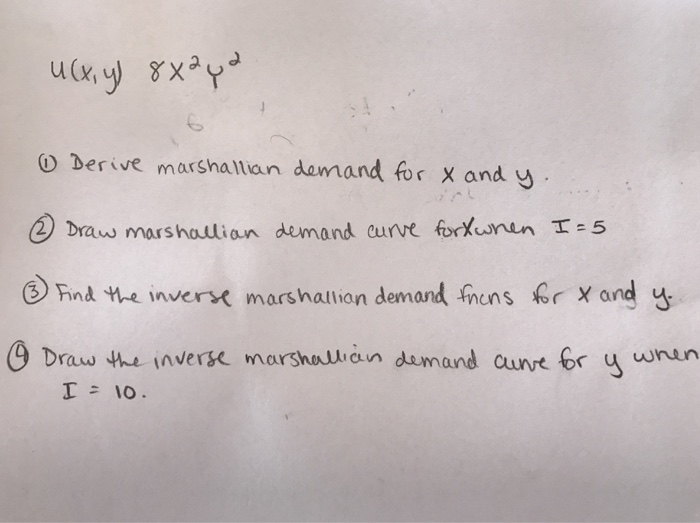 u(x,y) 8x²y²
① Derive marshallian demand for x and y.
② Draw marshallian demand curve for x when I = 5
③ Find the inverse marshallian demand fncns for x and y.
④ Draw the inverse marshallian demand curve for y when
I = 10.